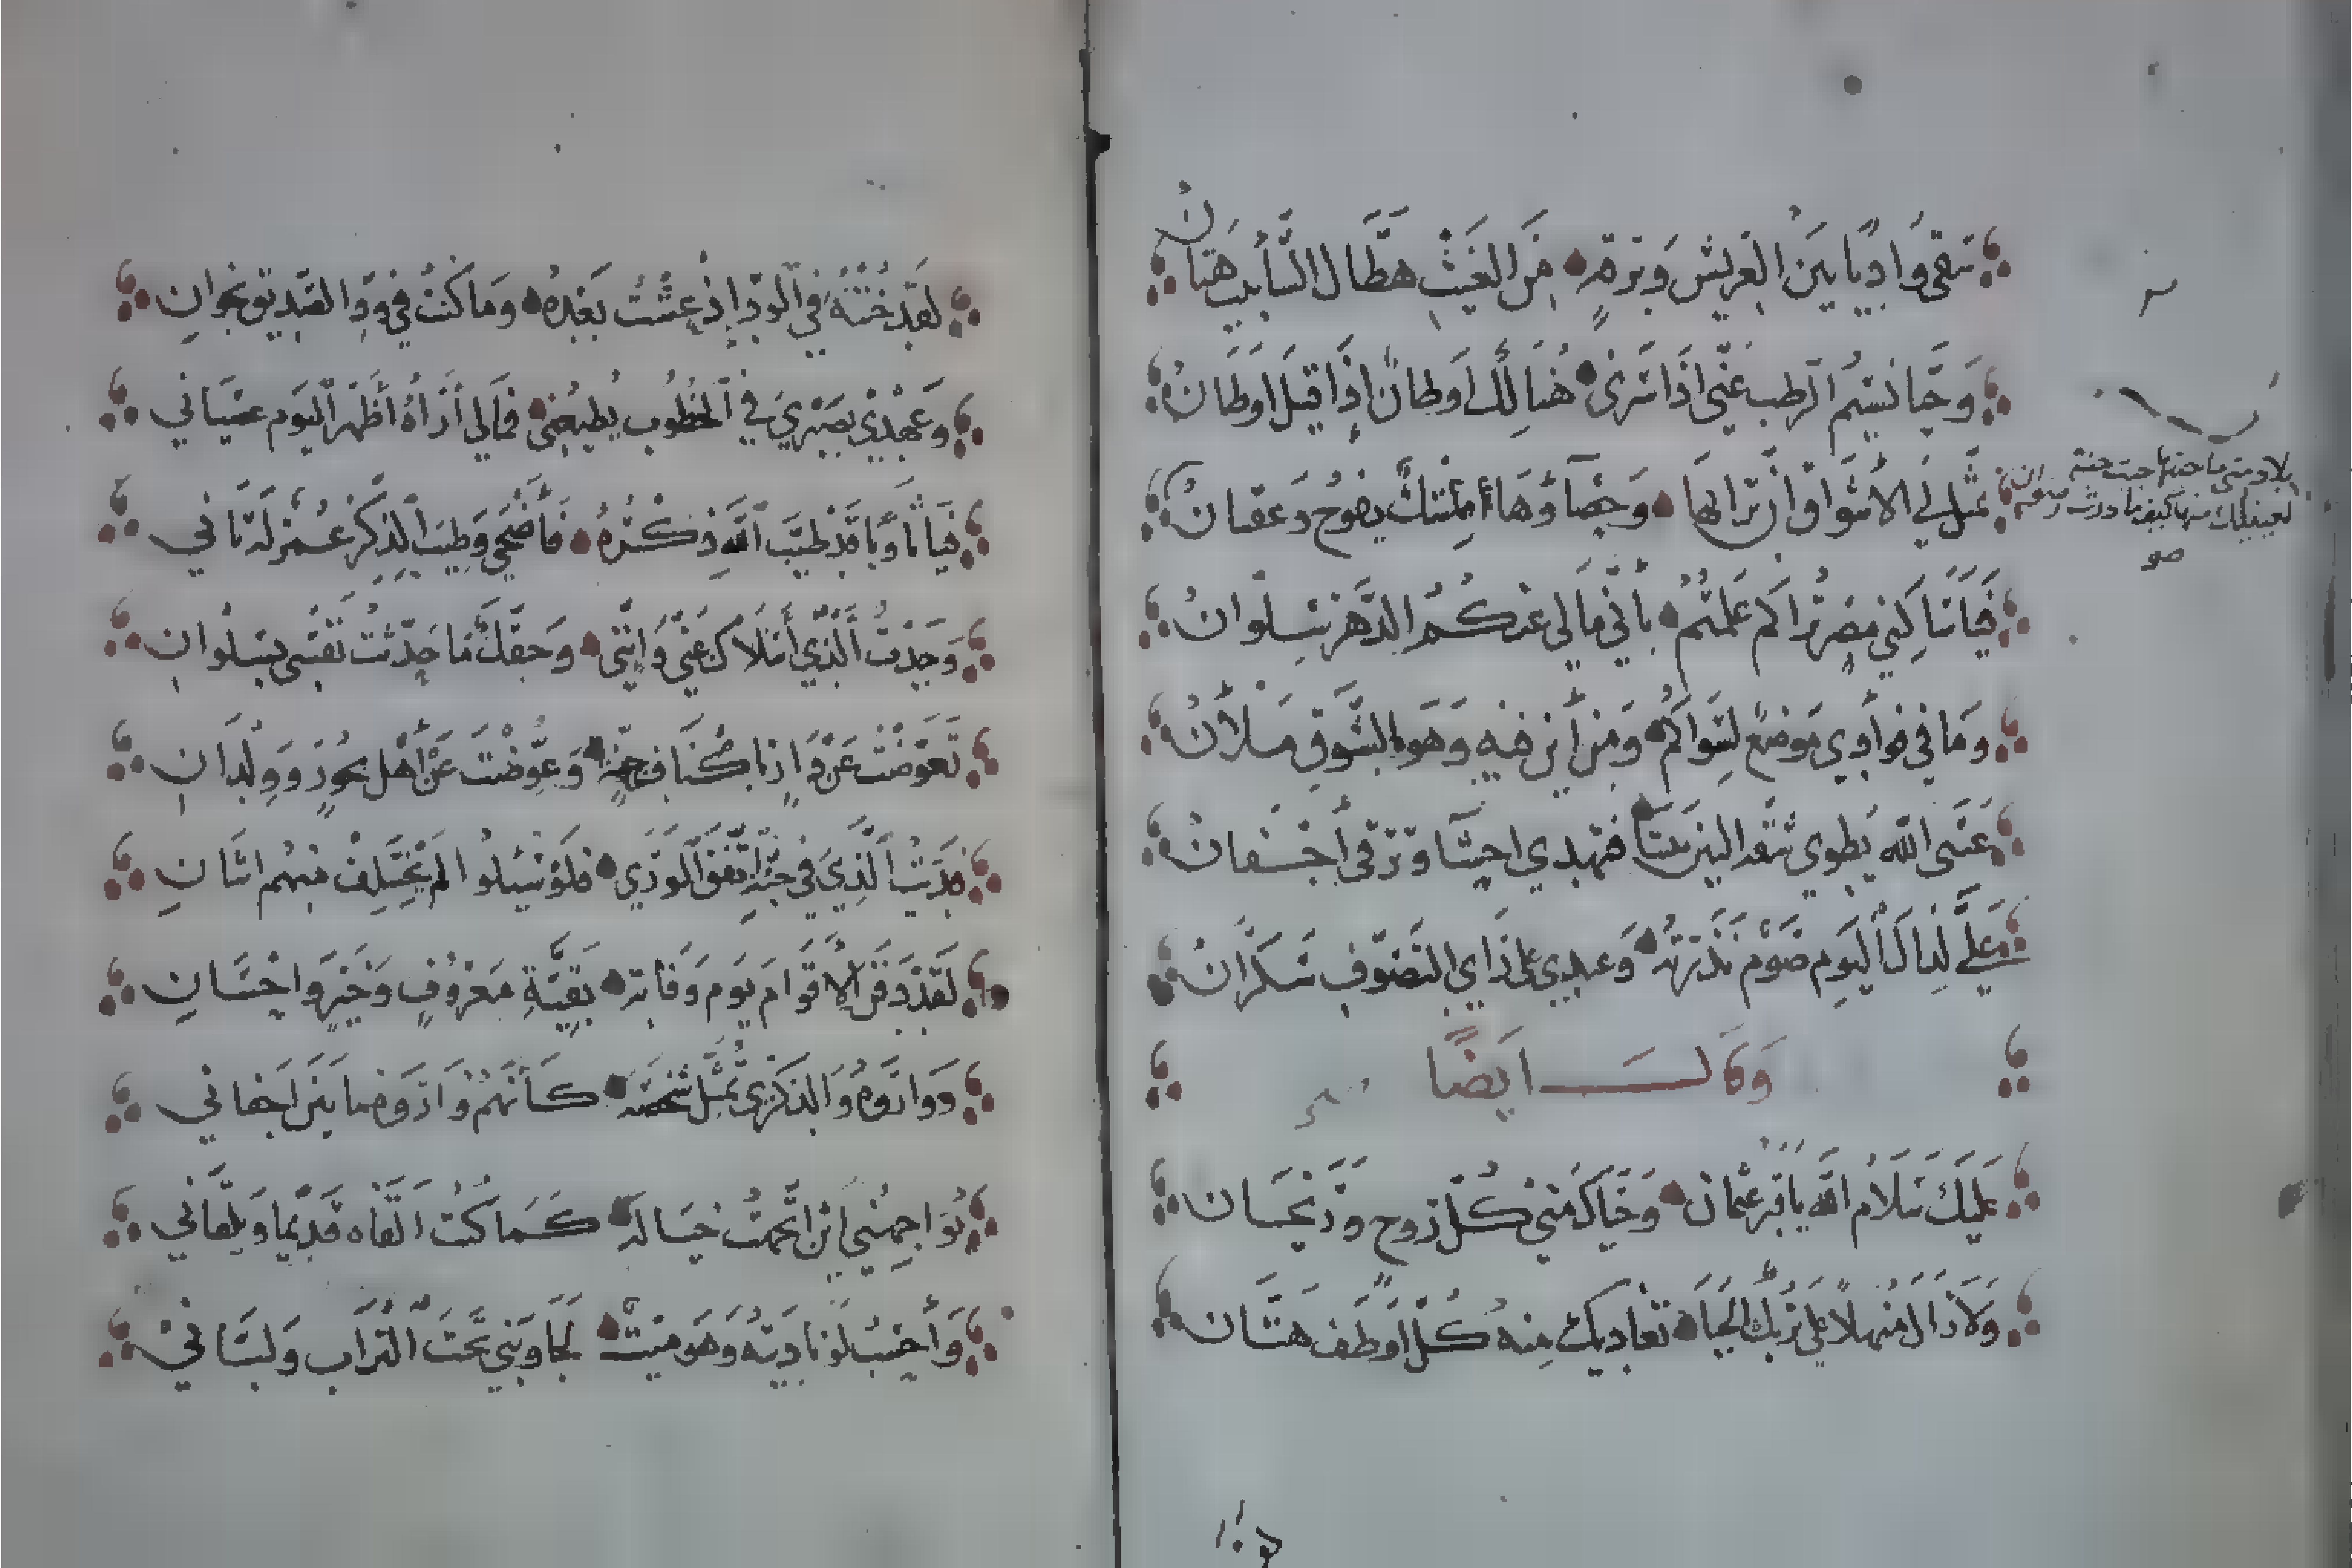 سَقى وَادِيًا بَينَ العَريشِ وَبَرقةٍ مِنَ الغَيثِ هَطَّال الشَّآبيب هَتَّانُ
وَحَيَّا نَسيمُ الرطب عَنّي اذَا سَرَى هُنَالِكَ اوطانٌ إذَا قيلَ اوطَانُ
بلاد متى ما جئتها جئت جنة
لعينيك منها كيفما درت رضوان
صو
تمثّل لي الاشواق ان ترابها وَحَصبَآؤُهَا مِسْكٌ يفوح وَعقيانُ
فيَا سَاكِني مِصْرٍ تراكم عَلمتُمُ بأنّي مَا لي عنكُمُ الدَّهْرَ سلوانُ
ومَا في فوادي مَوضعٌ لِسَواكُمُ وَمن أين فيهِ وَهوَ بالشَّوقِ ملآنُ
عَسَى الله يَطوي شقة البَين بيننا فتهدي احشًا وترقى أجفانُ
عَليَّ لِذاك اليَومِ صَوْم نَذَرتهُ وعندي على رَاي التصَوّفِ شكرَانُ
وَقَالَ ايضًا
عَلَيكَ سَلَامُ اللَّه يَا قبرَ عُثمان وَحَيَّاكَ مِنّي كُلّ رَوح وَرَيحَان
وَلَا زَالَ مُنهلًا عَلى تُربِكَ الحَيَا تغاديك مِنه كُلّ اوطَف هَتَّان
لَقَد خُنْتُهُ في الودّ إِذ عِشْتُ بَعْدهُ وَمَا كُنتُ في وِدّ الصَّدِيق بخوانِ
وَعَهْدي بِصَبْرِي في الخُطُوب يُطيعُني فمَالي أرَاهُ أظهرَ اليَوم عصْيَاني
فيَا ثَاوِيًا قَدْ طَيَّبَ اللَّه ذِكْرُهُ فَأَضْحَى وَطِيبُ الذِكر عُمر لَهُ ثَاني
وَجَدْتُ الَّذي أسْلَاك عَنّي وَإِنَّني وَحَقّكَ مَا حَدّثت نَفْسي بِسُلْوانِ
تَعَوّضْتَ عَن دَارٍ بأكْنَاف جنّةٍ وَعُوّضْتَ عَنْ أهل بحُورٍ وَوِلْدَانِ
فَدَيْتُ الَّذِي في حُبّهِ اتّفَقَ الْوَرَى فلَوْ سُئِلُوا لم يختَلِفْ مِنهُم اثنَانِ
لَقَدْ دَفَنَ الأَقوَام يَوم وَفَاتِه بَقِيَّةِ مَعْرُوفٍ وَخَيْرٍ وَاحْسَانِ
وَوَارَوهُ وَالذكْرَى تُمثّلُ شَخْصَهُ كَأَنَّهُمُ وَارَوهُ مَا بَينَ اجفاني
يُوَاجِهُني أين اتجهتُ خَيَالهُ كَمَا كُنتُ القَاه قَدِيمًا وَيلْقَاني
وَأحْسبُ لو نادَيتُهُ وَهوَ مَيّتٌ لجَاوَبَني تَحتَ التُرَاب وَلَبَّاني